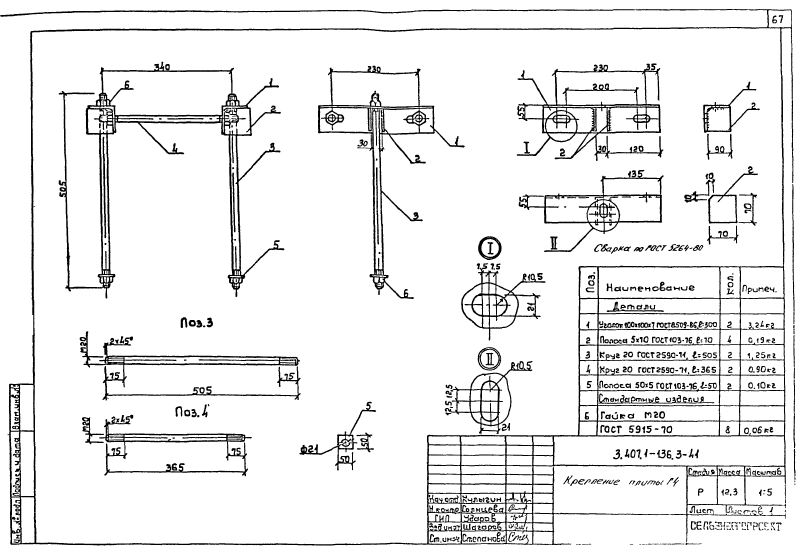 67
340
6
1
2
4
3
505
5
230
30
1
2
3
6
230
35
200
1
55
I
2
30
120
1
2
90
135
55
II
10
10
2
70
70
Сварка по ГОСТ 5264-80
I
7,5 7,5
R10,5
21
II
R10,5
12,5 12,5
21
Поз.3
M20
2×45°
75
75
505
Поз.4
M20
2×45°
75
75
365
5
ф21
50
50
Поз. Наименование Кол. Примеч.
Детали
1 Уголок 100×100×7 ГОСТ 8509-86, ℓ=300 2 3,24кг
2 Полоса 5×70 ГОСТ 103-76, ℓ=70 4 0,19кг
3 Круг 20 ГОСТ 2590-71, ℓ=505 2 1,25кг
4 Круг 20 ГОСТ 2590-71, ℓ=365 2 0.90кг
5 Полоса 50×5 ГОСТ 103-76, ℓ=50 2 0.10кг
Стандартные изделия
6 Гайка М20
ГОСТ 5915-70 8 0,06кг
3.407.1-136.3-41
Крепление плиты П4
Стадия Масса Масштаб
Р 12,3 1:5
Лист Листов 1
Нач.отд. Кулыгин
Н.контр. Солнцева
ГИП Ударов
Ст.инж. Степанова
Инв. № подл. Подпись и дата Взам.инв.№